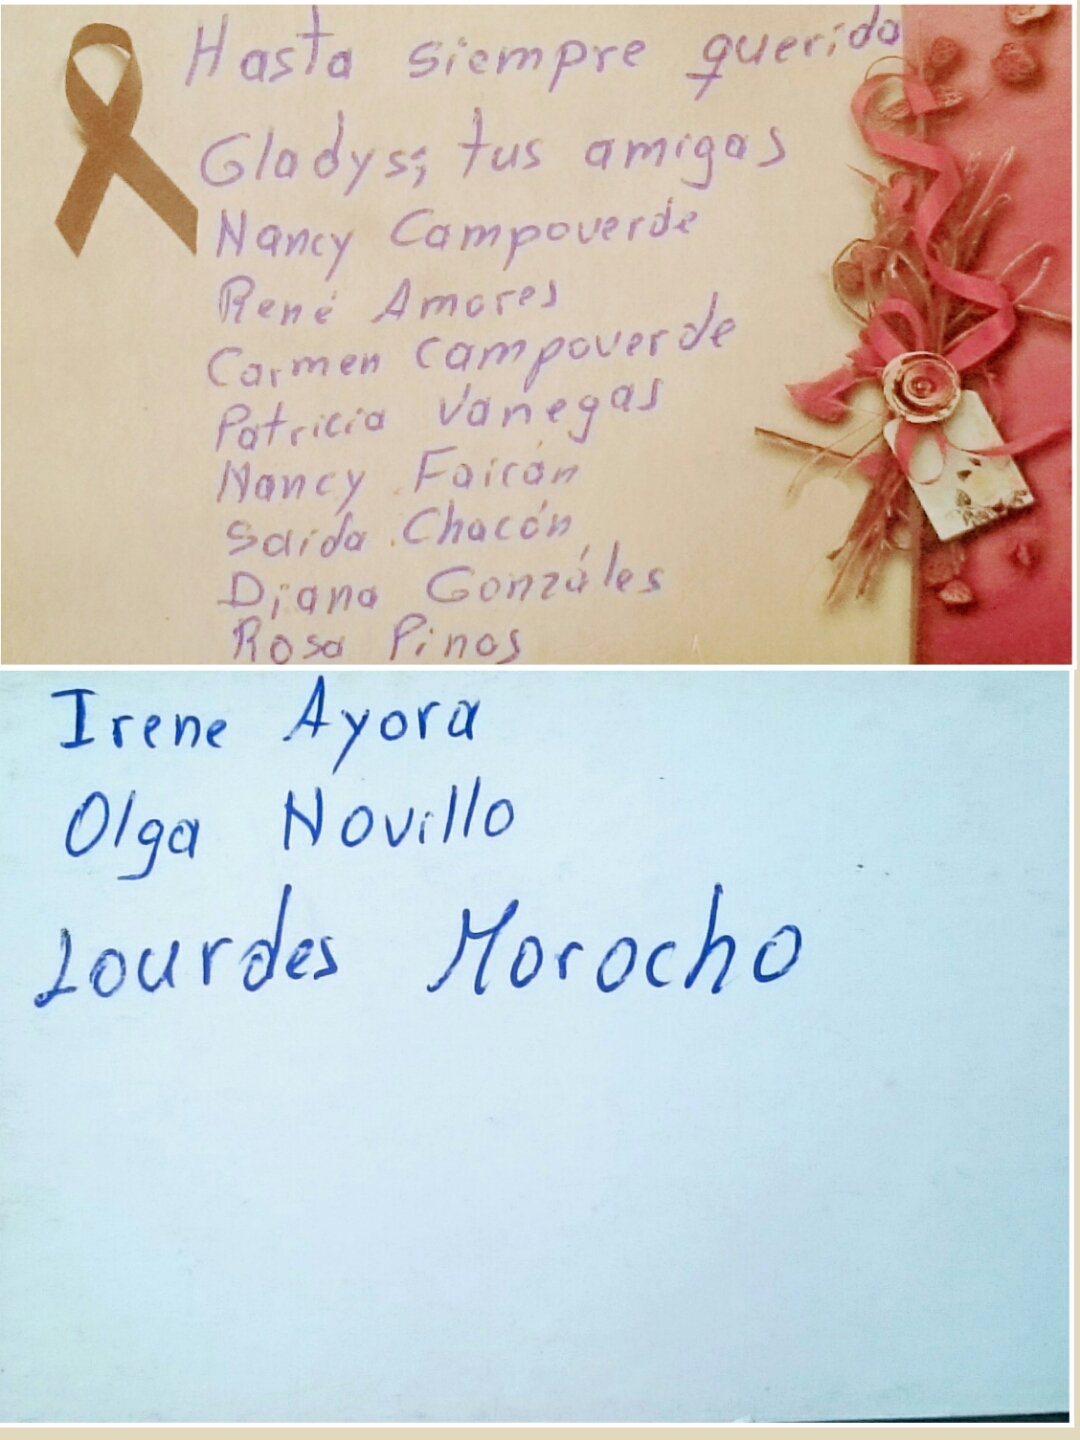 Hasta siempre querida
Gladys; tus amigas
Nancy Campoverde
René Amores
Carmen Campoverde
Patricia Vanegas
Nancy Faicán
Saida Chacón
Diana Gonzáles
Rosa Pinos
Irene Ayora
Olga Novillo
Lourdes Morocho